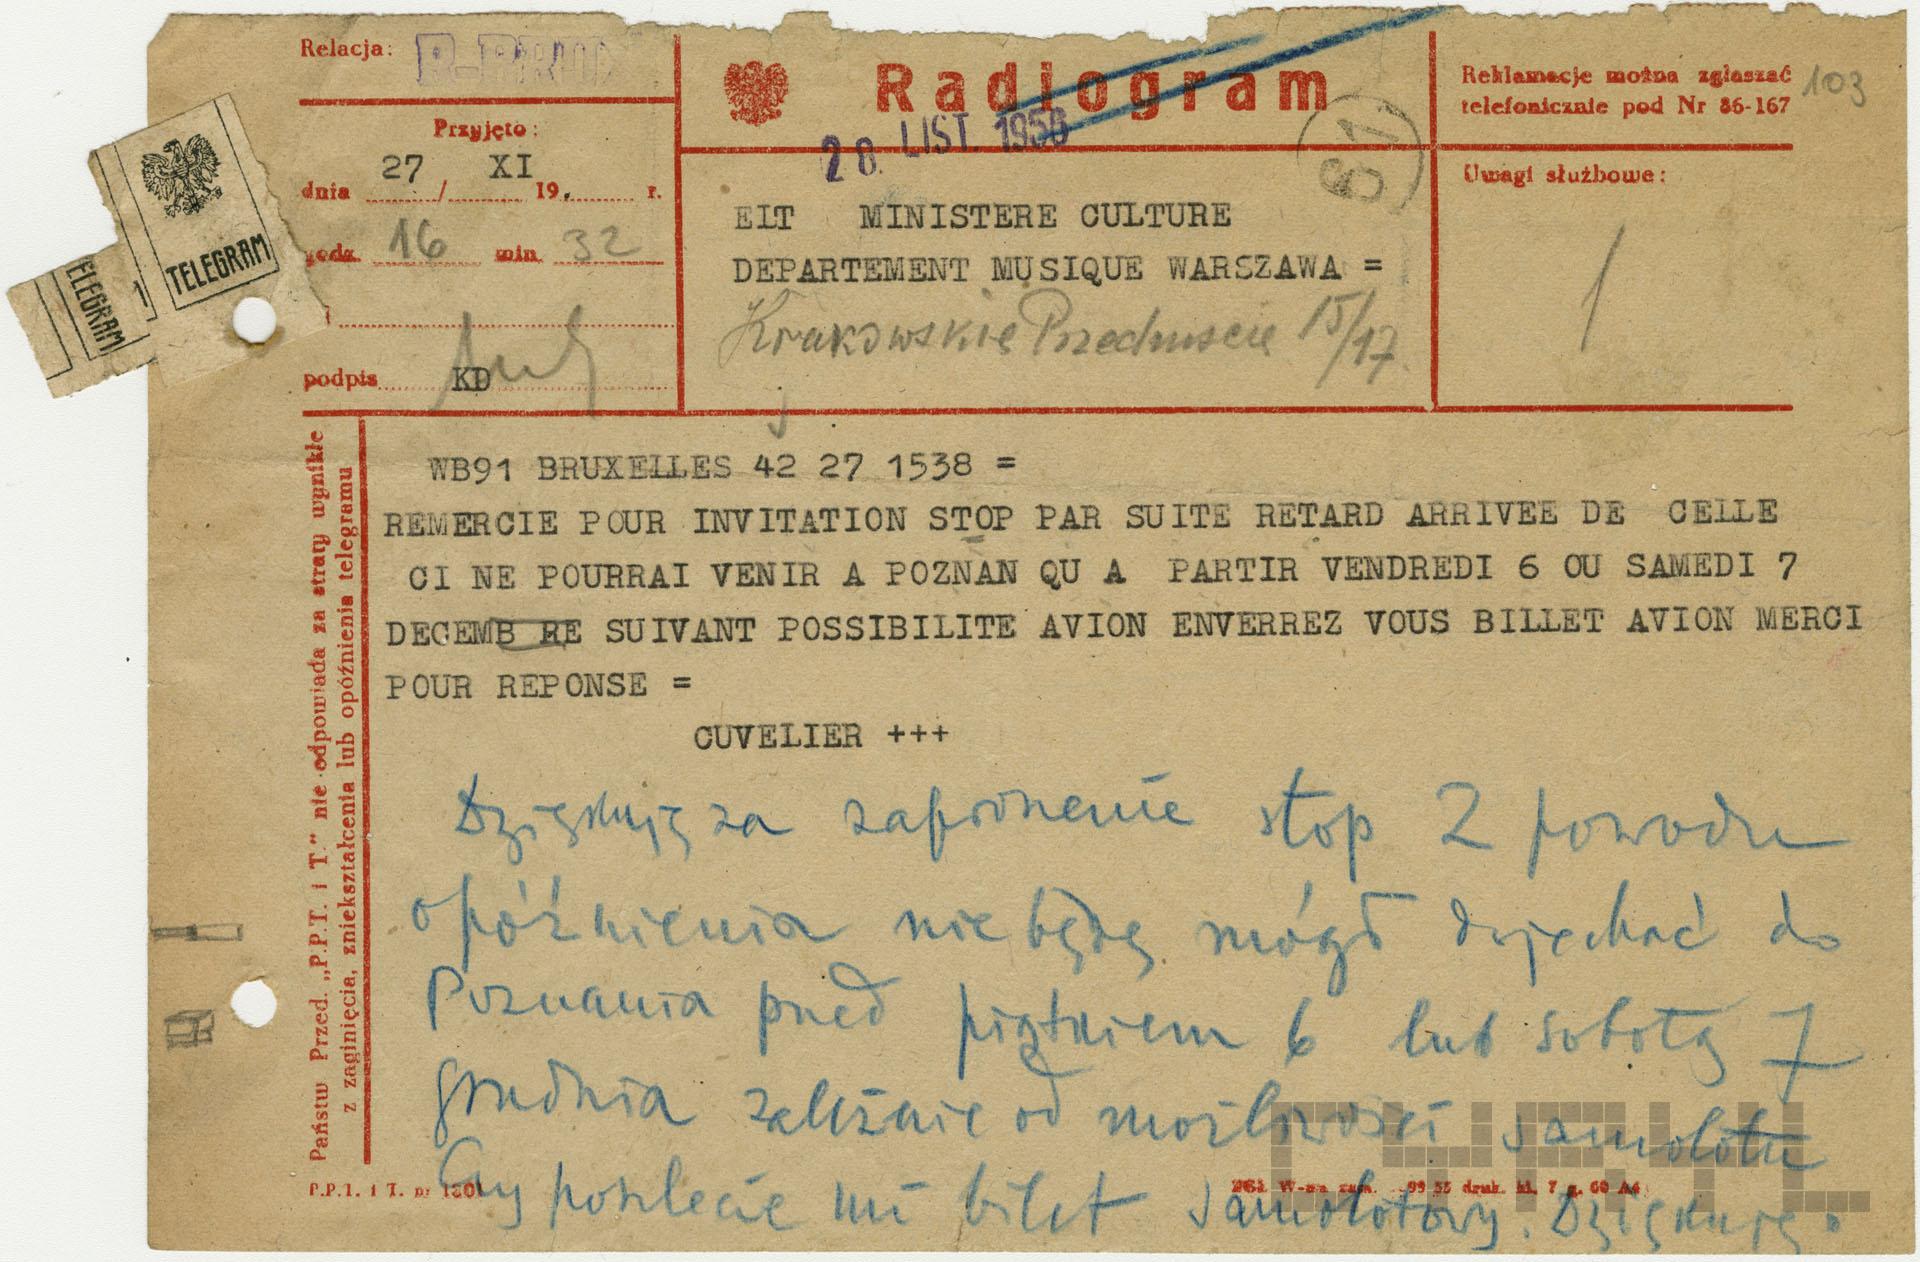 Relacja:
Radiogram
Reklamacje można zgłaszać
telefonicznie pod Nr 86-167
103
28. LIST. 1956
Przyjęto:
dnia 27 / XI 19 . r.
godz. 16 min. 32
podpis KD
TELEGRAM
ELEGRAM
EIT MINISTERE CULTURE
DEPARTEMENT MUSIQUE WARSZAWA =
Krakowskie Przedmieście 15/17.
Uwagi służbowe:
WB91 BRUXELLES 42 27 1538 =
REMERCIE POUR INVITATION STOP PAR SUITE RETARD ARRIVEE DE CELLE
CI NE POURRAI VENIR A POZNAN QU A PARTIR VENDREDI 6 OU SAMEDI 7
DECEMB RE SUIVANT POSSIBILITE AVION ENVERREZ VOUS BILLET AVION MERCI
POUR REPONSE =
CUVELIER +++
Dziękuję za zaproszenie stop Z powodu
opóźnienia nie będę mógł dojechać do
Poznania przed piątkiem 6 lub sobotą 7
grudnia zależnie od możliwości samolotu
Czy poszlecie mi bilet samolotowy. Dziękuję.
Państw Przed. „P.P.T. i T." nie odpowiada za straty wynikłe
z zaginięcia, zniekształcenia lub opóźnienia telegramu
P.P.T. i T. nr
druk.